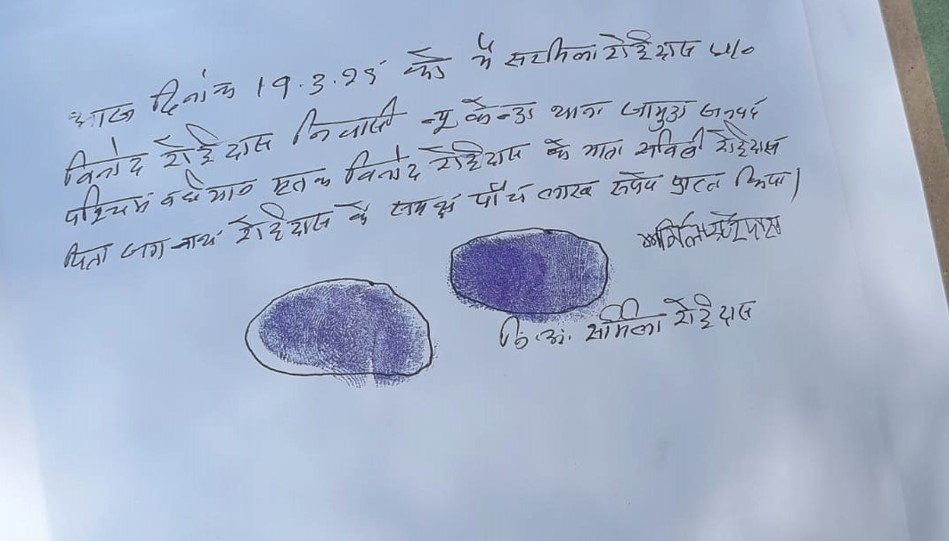 आज दिनांक 19.3.25 को मैं सरमिला रोहिदास W/o
विनोद रोहिदास निवासी न्यू केन्डा थाना जामुड़ा जनपद
पश्चिम वर्धमान मृतक विनोद रोहिदास के माता सावित्री रोहिदास
पिता जगन्नाथ रोहिदास के समक्ष पाँच लाख रुपये प्राप्त किया।
रोहिदास
नि.अं. सर्मिला रोहिदास